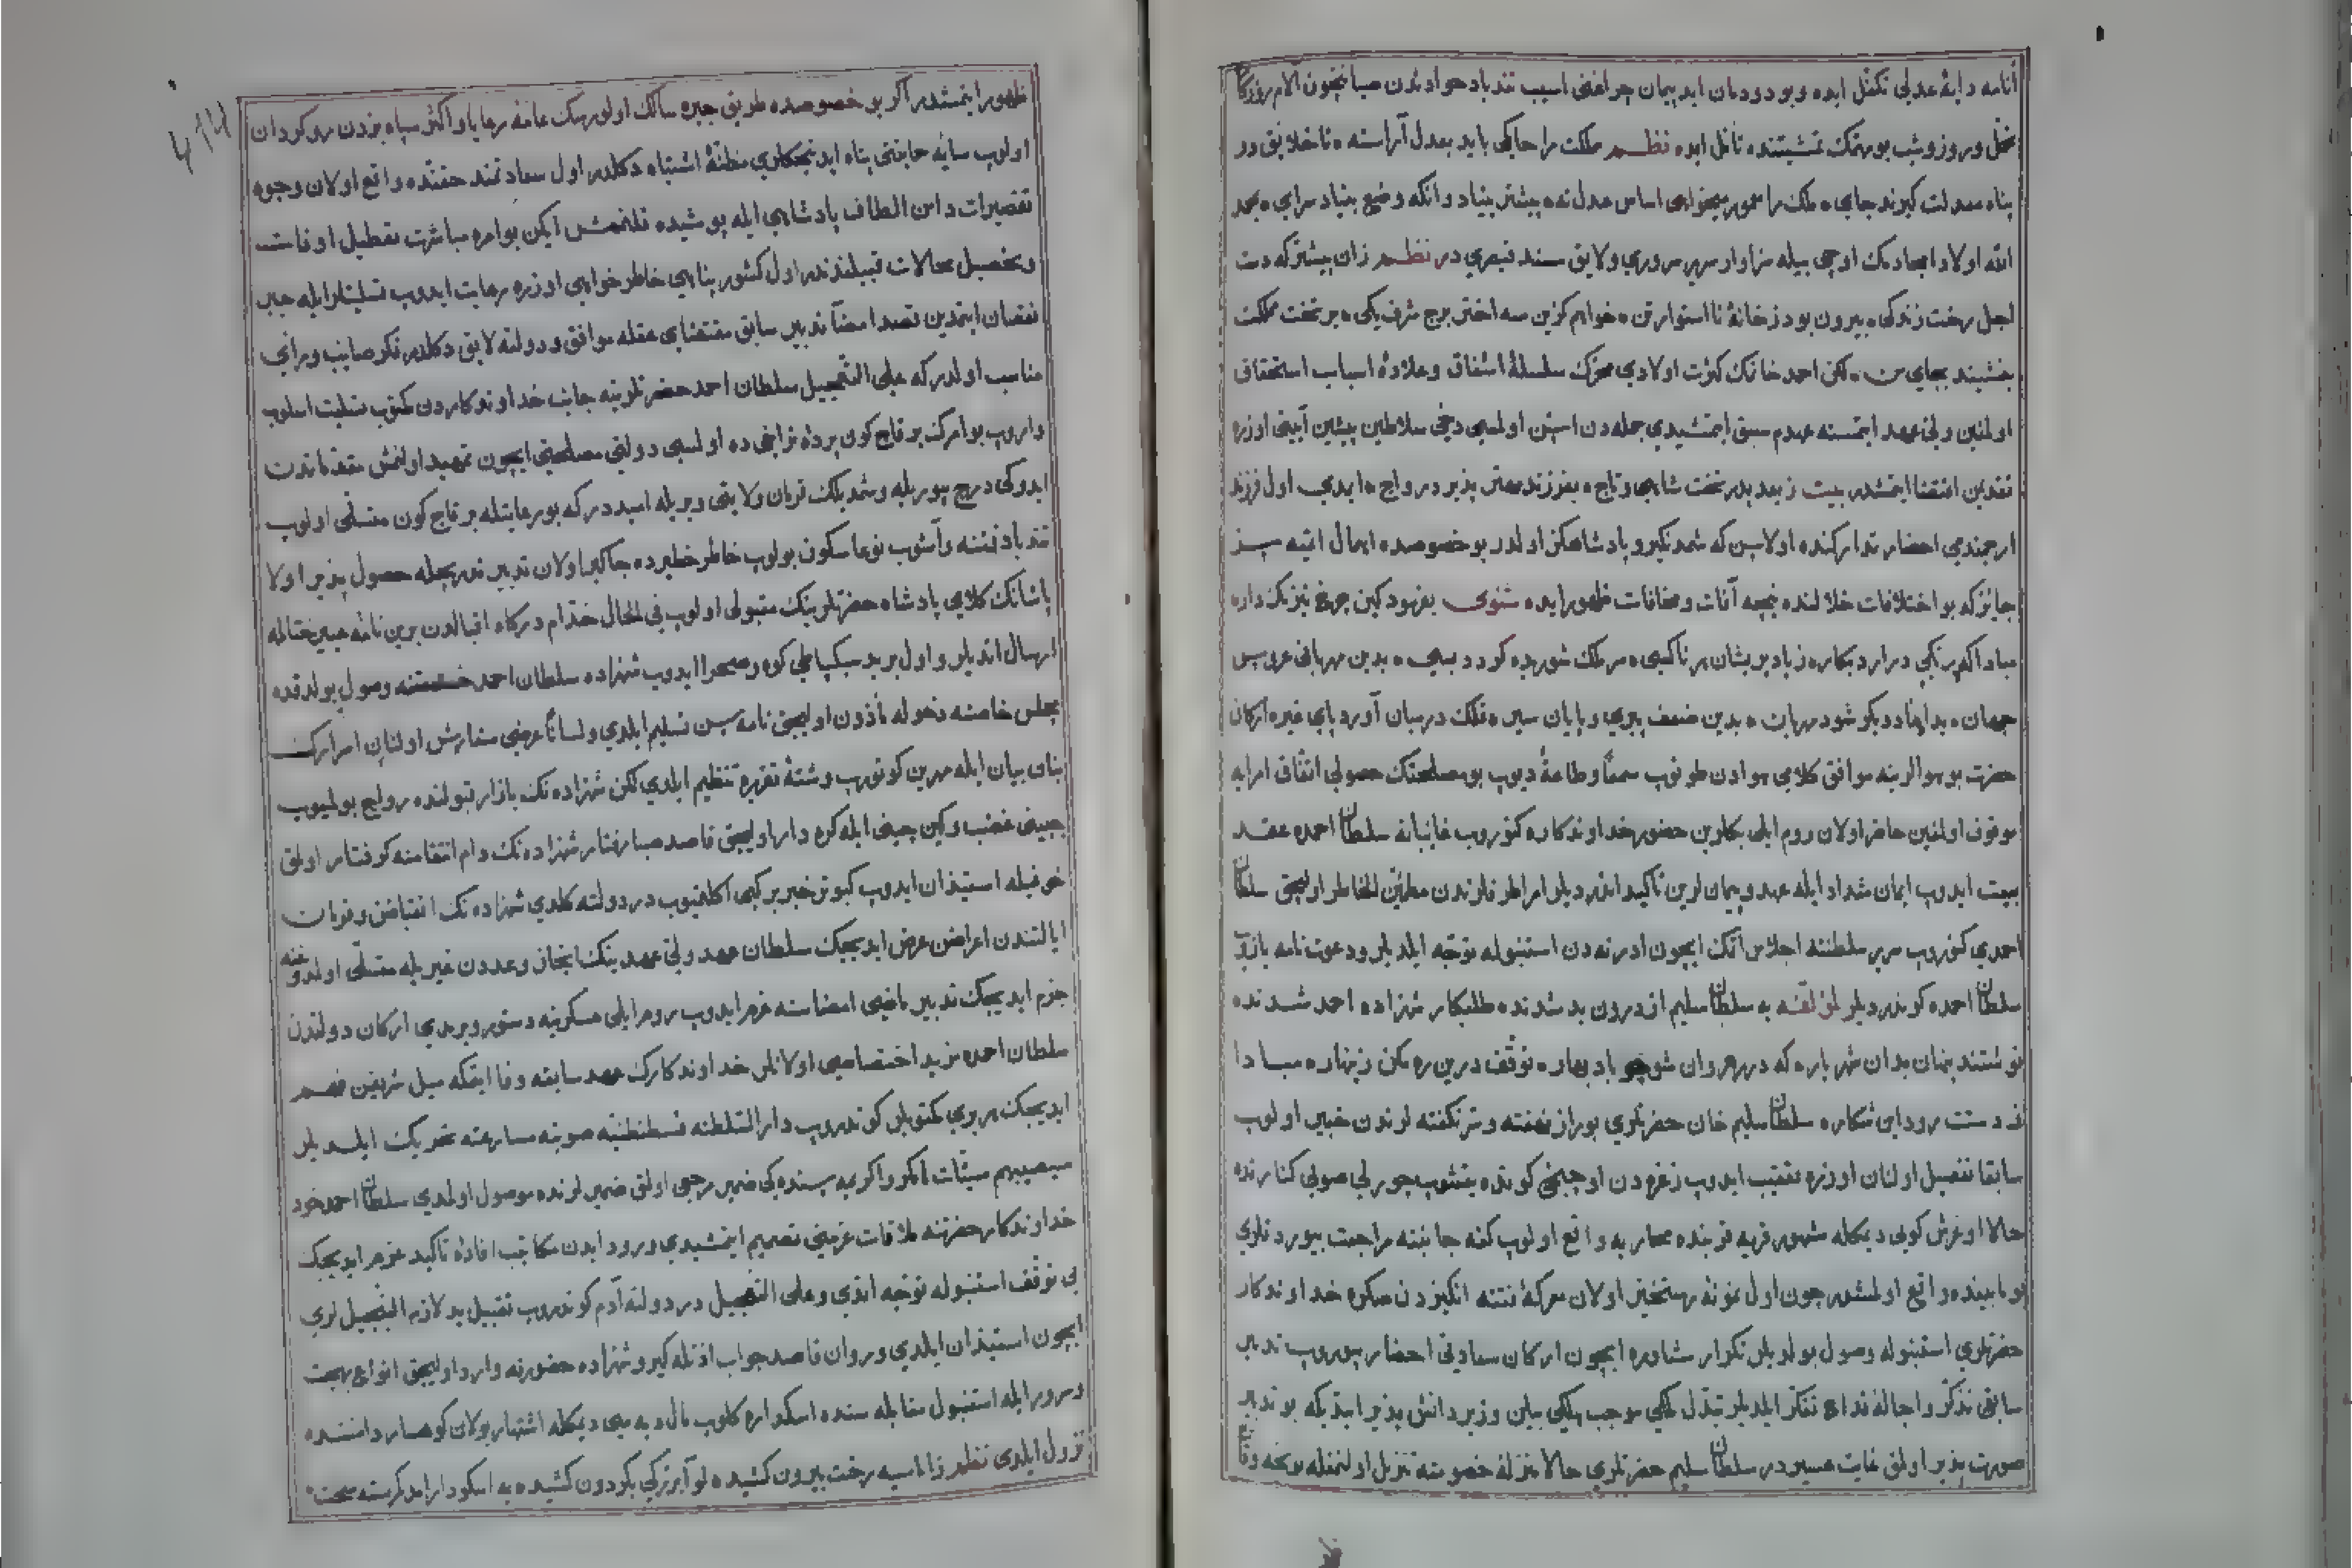 انامه دایهٔ عدلی تکفل ایده و بو دودمان ابد پیمان چراغنی اسیب تندباد حوادثدن صیانتچون الام روزکار
تحمل و روز و شب بو مهمک تمشیتنده تأمل ایده نظم مملکت را حاکمی باید بعدل آراسته تا خلایق در
پناه معدلت کیرند جای ملک را معمور میخواهی اساس عدل نه پیشتر بنیاد وانکه وضع بنیاد سرای بحمد
الله اولاد امجادمک اوچی بیله سزاوار سریر سروری و لایق مسند قیصری در نظم زان پیشتر که دست
اجل رخت زندکی بیرون بود ز خانهٔ نا استوار تن خواهم کزین سه اختر برج شرف یکی بر تخت مملکت
بنشیند بجای من لکن احمد خانک کثرت اولادی محرک سلسلهٔ اشفاق و علاوهٔ اسباب استحقاق
اولغین ولی عهد ایتمسنه عهدم سبق ایتمشیدی جمله دن اسن اولمسی دخی سلاطین پیشین آیینی اوزره
تقدیمن اقتضا ایتمشدر بیت ز بعد پدر تخت شاهی و تاج بفرزند مهتر پذیرد رواج ایدی اول فرزند
ارجمندمی احضار تدارکنده اولاسن که شمدنکیرو پادشاهکز اولدر بو خصوصده اهمال ایتیه سز
جایزکه بو اختلافات خلالنده نیجه آفات و مخافات ظهور ایده مثنوی بفرمود کین چرخ نیرنک دار
مبادا که رنکی درارد بکار زیاد پریشان هر ناکسی سر ملک شوریده کردد بسی بدین مهربانی عروس
جهان بداماد دیکر شود مهربان بدین ضعف پیری و پایان سیر فلک در میان آورد پای غیر ارکان
حضرت بو هوالرینه موافق کلامی هوادن طوتوب سمعا و طاعة دیوب بو مصلحتک حصولی اتفاق امرایه
موقوف اولغین حاضر اولان روم ایلی بکلرین حضور خداوندکاره کتوروب غایبانه سلطان احمده عقد
بیعت ایدوب ایمان شداد ایله عهد و پیمانلرین تاکید اندردیلر امرا طرفلرندن مطمئن الخاطر اولیجق سلطان
احمدی کتوروب سریر سلطنته اجلاس اتمک ایچون ادرنه دن استنبوله توجه ایلدیلر و دعوتنامه یازوب
سلطان احمده کوندردیلر لمؤلفه به سلطان سلیم از درون بد شدند طلبکار شهزاده احمد شدند
نوشتند پنهان بدان شهریار که در رهروان شو چو باد بهار توقف درین ره مکن زینهار مبادا
از دست رود این شکار سلطان سلیم خان حضرتلری بو راز نهفته و سر نکفته لرندن خبیر اولوب
سابقا تفصیل اولنان اوزره تعقیب ایدوب زغره دن اوچینجی کونده یتشوب چورلی صویی کنارنده
حالا اوغرش کویی دیمکله مشهور قریه قربنده محاربه واقع اولوب کفه جانبنه مراجعت بیوردقلری
بو مابینده واقع اولمشدر چون اول نمونهٔ رستخیز اولان معرکهٔ فتنه انکیزدن صکره خداوندکار
حضرتلری استنبوله وصول بولدیلر تکرار مشاوره ایچون ارکان سعادتی احضار بیوروب تدبیر
سابقی تذکر و اجالهٔ قداح تفکر ایلدیلر تبدل ملکی موجب مهلکی بیلن وزیر دانش پذیر ایتدیکه بو تدبیر
صورت پذیر اولمق غایت عسیردر سلطان سلیم حضرتلری حالا منزلهٔ خصومته تنزیل اولنمغله بونجه وقایع
ظهور ایتمشدر اکر بو خصوصده طریق جبره سالک اولورسک عامهٔ رعایا و اکثر سپاه بزدن روکردان
اولوب سایهٔ حمایتنی پناه ایدنجکلری مظنهٔ اشتباه دکلدر اول سعادتمند حقنده واقع اولان وجوه
تقصیرات دامن الطاف پادشاهی ایله پوشیده قلنممش ایکن بو امره مباشرت تعطیل اوقات
و تحصیل محالات قبیلندندر اول کشور پناهی خاطر خواهی اوزره رعایت ایدوب تسلیتلر ایله جبر
نقصان ایتمدین قصد امضآ تدبیر سابق مقتضای عقله موافق و دولته لایق دکلدر فکر صایب و رای
مناسب اولدر که علی التعجیل سلطان احمد حضرتلرینه جانب خداوندکاردن مکتوب تسلیت اسلوب
واروب بو امرک بر قاچ کون پردهٔ تراخی ده اولمسی دولتی مصلحتی ایچون تمهید اولنمش مقدماتدن
ایدوکی درج بیوریله و شمدیلک قرمان ولایتی ویریله امیددر که بو رعایتله بر قاچ کون متسلی اولوب
تندباد فتنه و آشوب نوعا سکون بولوب خاطر خطیرده جاکیر اولان تدبیر تدریجله حصول پذیر اولا
پاشانک کلامی پادشاه حضرتلرینک مقبولی اولوب فی الحال خدام درکاه اقبالدن برین نامهٔ عنبرین ختامله
ارسال اندیلر و اول برید سبکپا طی کوه و صحرا ایدوب شهزاده سلطان احمد خدمتنه وصول بولدقده
مجلس خاصنه دخوله مأذون اولیجق نامه سین تسلیم ایلدی و لسانا عرضی سفارش اولنان اسرارک
بنان بیان ایله مهرین کوتوروب رشتهٔ تقریره تنظیم ایلدی لکن شهزاده نک بازار قبولنده رواج بولمیوب
جبینی غضب و کین چینی ایله کره دار اولیجق قاصد صبا رفتار شهزاده نک دام انتقامنه کرفتار اولمق
خوفیله استیذان ایدوب کبوتر خبر بر کبی اکلنمیوب در دولته کلدی شهزاده نک انقباضن و قرمان
ایالتندن اعراضن عرض ایدیجک سلطان عهد ولی عهدینک انجاز وعددن غیریله متسلی اولمدوغنه
جزم ایدیجک تدبیر ماضی امضاسنه عزم ایدوب روم ایلی عسکرینه دستور ویردی ارکان دولتدن
سلطان احمده مزید اختصاصی اولانلر خداوندکارک عهد سابقنه وفا ایتمکه میل شریفین فهم
ایدیجک هر بری مکتوبلر کوندروب دار السلطنه قسطنطنیه صوبنه مسارعته تحریک ایلدیلر
سیصیبهم سیئات مامکروا کریمه سنده کی ضمیر مرجعی اولمق ضمیرلرنده موصول اولمدی سلطان احمد خود
خداوندکار حضرتنه ملاقات عزمنی تصمیم ایتمشیدی ورود ایدن مکاتیب افادهٔ تاکید عزم ایدیجک
بی توقف استنبوله توجه ایتدی و علی التعجیل در دولته آدم کوندروب تقبیل ید لازم التبجیللری
ایچون استیذان ایلدی و روان قاصد جواب اذنله کیرو شهزاده حضورنه وارد اولیجق انواع بهجت
و سرور ایله استنبول مقابله سنده اسکداره کلوب مال دپه سی دیمکله اشتهار بولان کوهسار دامننده
نزول ایلدی نظم ز اماسیه رخت بیرون کشید لوآ بزرکی بکردون کشید به اسکودار امد کرسته سخت
۴۱۴